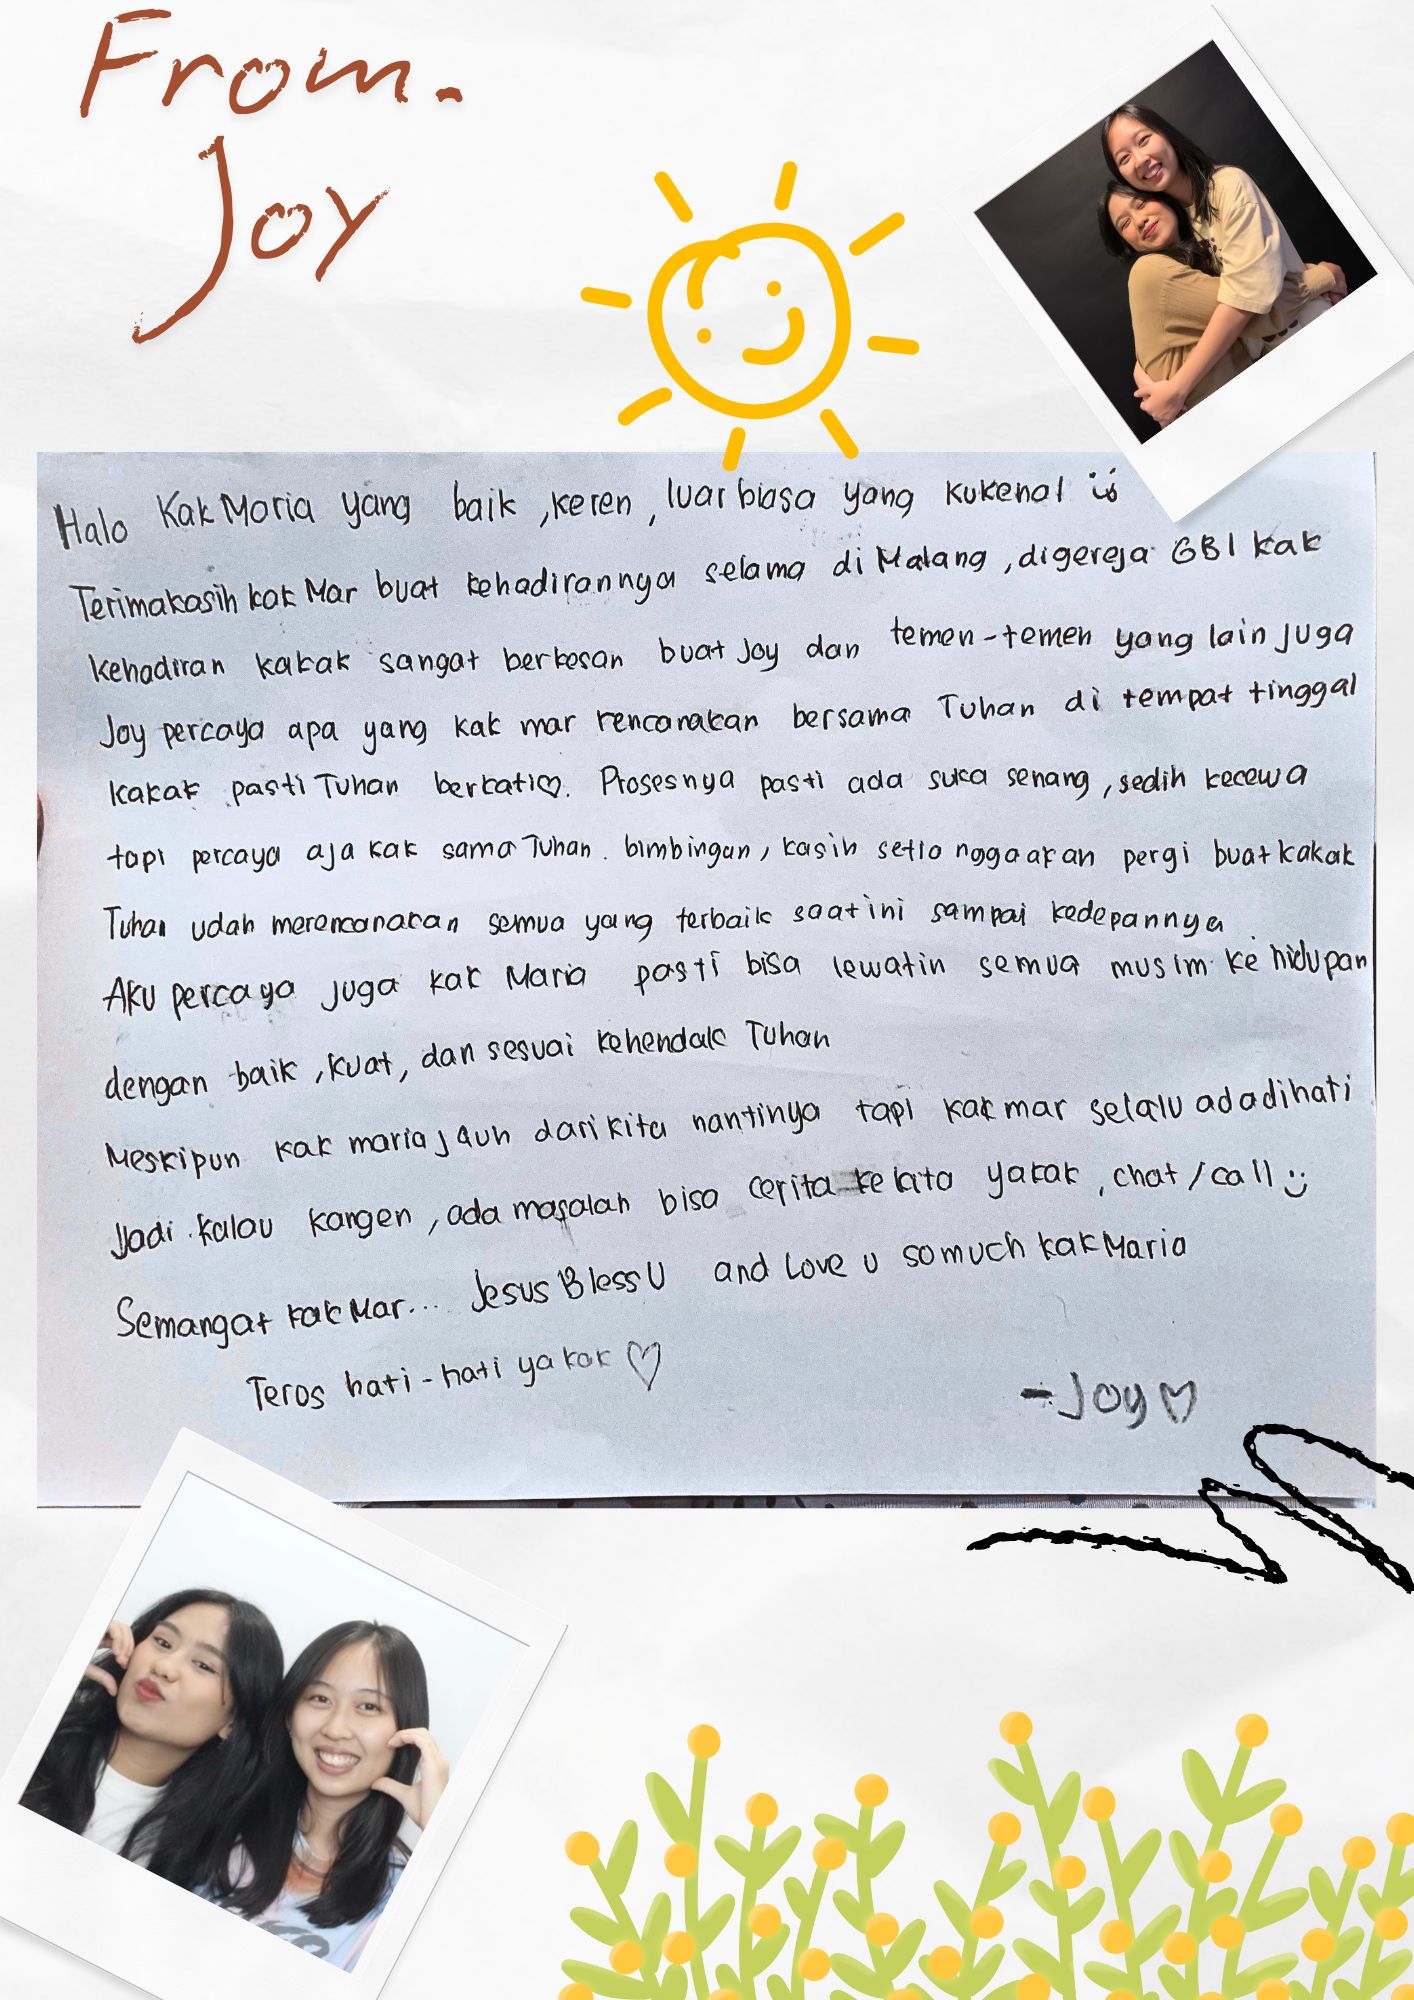 From.
Joy
Halo Kak Maria yang baik, keren, luar biasa yang kukenal
Terimakasih kak Mar buat kehadirannya selama di Malang, digereja GBI kak
kehadiran kakak sangat berkesan buat Joy dan temen-temen yang lain juga
Joy percaya apa yang kak mar rencanakan bersama Tuhan di tempat tinggal
kakak pasti Tuhan berkati♡. Prosesnya pasti ada suka senang, sedih kecewa
tapi percaya aja kak sama Tuhan. bimbingan, kasih setia nggaakan pergi buat kakak
Tuhan udah merencanakan semua yang terbaik saat ini sampai kedepannya
Aku percaya juga kak Maria pasti bisa lewatin semua musim kehidupan
dengan baik, kuat, dan sesuai kehendak Tuhan
Meskipun kak maria jauh dari kita nantinya tapi kak mar selalu ada dihati
Jadi kalau kangen, ada masalah bisa cerita ke kita ya kak, chat/call :)
Semangat kak Mar... Jesus Bless U and Love u so much kak Maria
Teros hati-hati ya kak ♡
-Joy♡